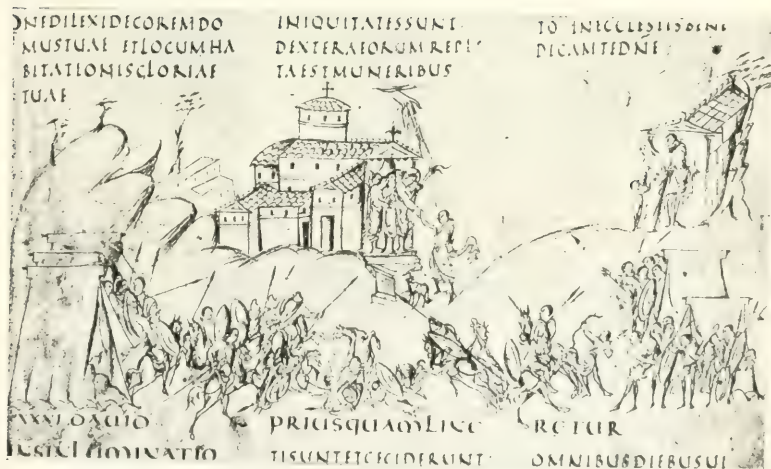 DNEDILEXIDECOREMDO
MUSTUAE ETLOCUMHA
BITATIONISGLORIAE
TUAE
INIQUITATESSUNT
DEXTERAEORUMREPL
TAESTMUNERIBUS
TO INECCLESIISBENE
DICAMTEDNE
PRIUSQUAMLINI
TISUNTETCECIDERUNT
RETUR
OMNIBUSDIEBUSUI